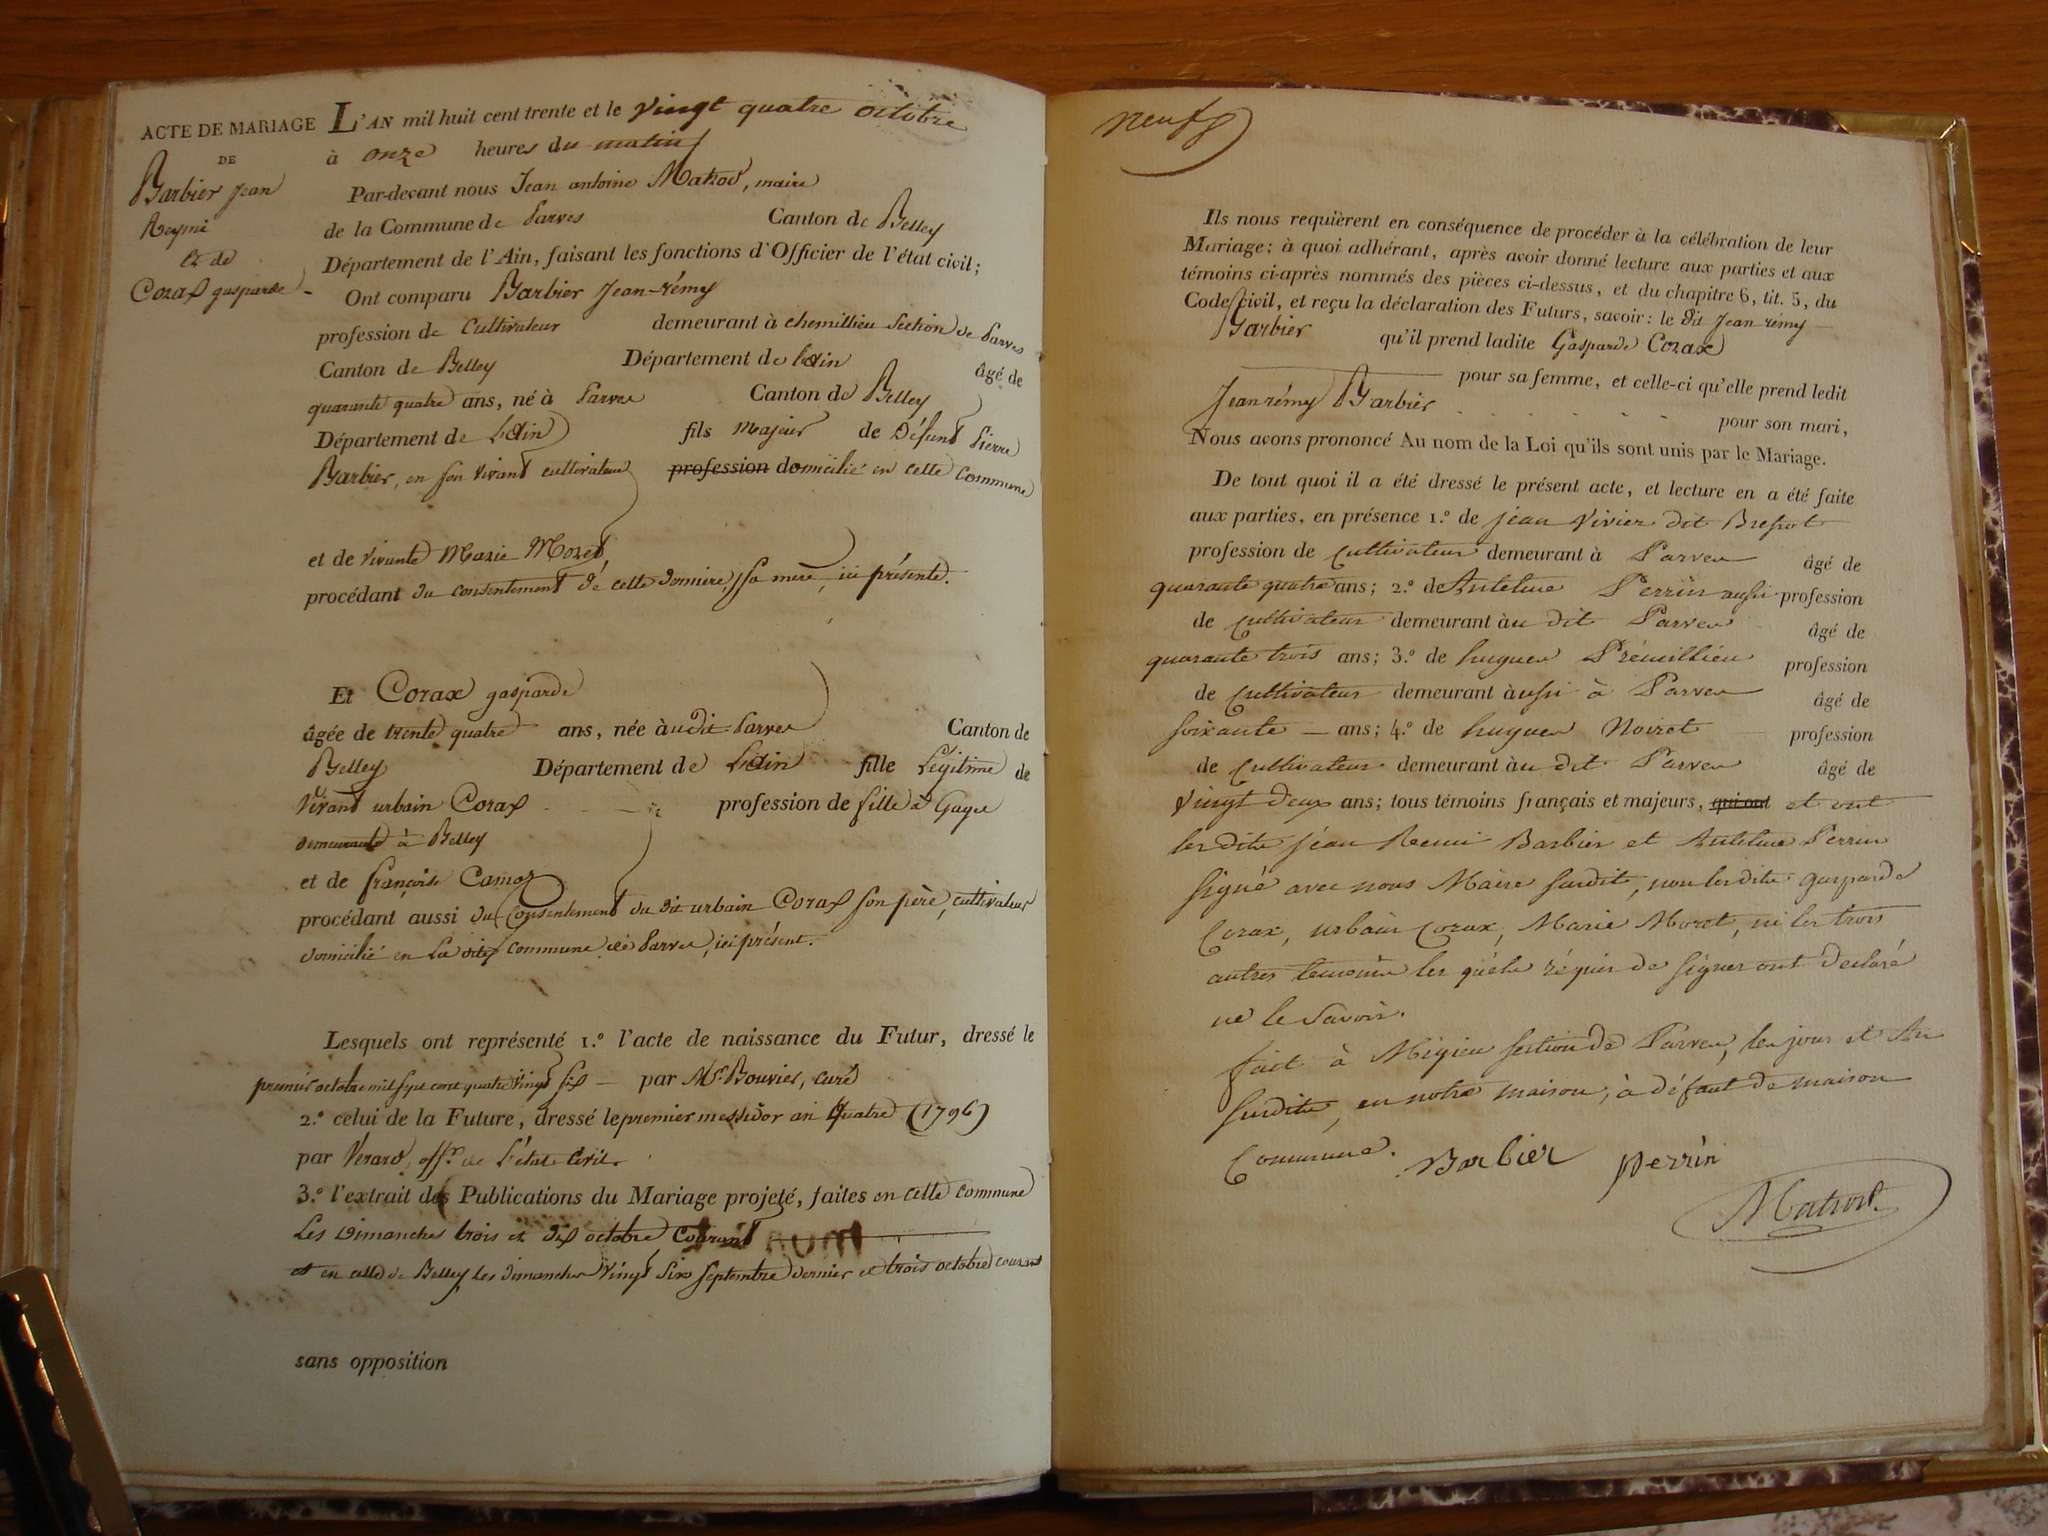 ACTE DE MARIAGE
DE
Barbier Jean
Reymi
Et de
Corax gasparde
L'AN mil huit cent trente et le vingt quatre octobre
à onze heures du matin
Par-devant nous Jean antoine Matrod, maire
de la Commune de Parves Canton de Belley
Département de l'Ain, faisant les fonctions d'Officier de l'état civil;
Ont comparu Barbier Jean-rémy
profession de Cultivateur demeurant à chemillieu Section de Parves
Canton de Belley Département de l'Ain âgé de
quarante quatre ans, né à Parves Canton de Belley
Département de L'Ain fils majeur de Défunt Pierre
Barbier, en son vivant cultivateur profession domicilié en cette Commune
et de vivante Marie Moret,
procédant du consentement de cette dernière, sa mère, ici présente.
Et Corax gasparde
âgée de trente quatre ans, née àudit Parves Canton de
Belley Département de L'Ain fille Légitime de
Vivant urbain Corax profession de fille à Gage
demeurante à Belley
et de françoise Camoz
procédant aussi du Consentement du dit urbain Corax son père, cultivateur
domicilié en La dite commune de Parves, ici présent.
Lesquels ont représenté 1.º l'acte de naissance du Futur, dressé le
premier octobre mil sept cent quatre vingt six — par Mr Bouvier, curé
2.º celui de la Future, dressé le premier messidor an quatre (1796)
par Verard, offr de l'état Civil.
3.º l'extrait des Publications du Mariage projeté, faites en cette commune
Les Dimanches trois et dix octobre Courant
et en celle de Belley les dimanches vingt six septembre dernier et trois octobre courant
sans opposition
neuf
Ils nous requièrent en conséquence de procéder à la célébration de leur
Mariage; à quoi adhérant, après avoir donné lecture aux parties et aux
témoins ci-après nommés des pièces ci-dessus, et du chapitre 6, tit. 5, du
Code civil, et reçu la déclaration des Futurs, savoir: le dit Jean rémy
Barbier qu'il prend ladite Gasparde Corax
pour sa femme, et celle-ci qu'elle prend ledit
Jean rémy Barbier pour son mari,
Nous avons prononcé Au nom de la Loi qu'ils sont unis par le Mariage.
De tout quoi il a été dressé le présent acte, et lecture en a été faite
aux parties, en présence 1.º de jean Vivier dit
profession de Cultivateur demeurant à Parves âgé de
quarante quatre ans; 2.º de Antelme Perrin aussi profession
de Cultivateur demeurant àu dit Parves âgé de
quarante trois ans; 3.º de hugues Prémillieu profession
de Cultivateur demeurant àussi à Parves âgé de
soixante — ans; 4.º de hugues Noiret profession
de Cultivateur demeurant àu dit Parves âgé de
vingt deux ans; tous témoins français et majeurs, qui ont et ont
les dits jean Remi Barbier et Antelme Perrin
signé avec nous Maire susdit, non lesdits gasparde
Corax, urbain Corax, Marie Moret, ni les trois
autres temoins les quels réquis de signer ont déclaré
ne le savoir.
fait à Migieu section de Parves, les jour et An
susdits, en notre maison, à défaut de maison
Commune. Barbier perrin
Matrod